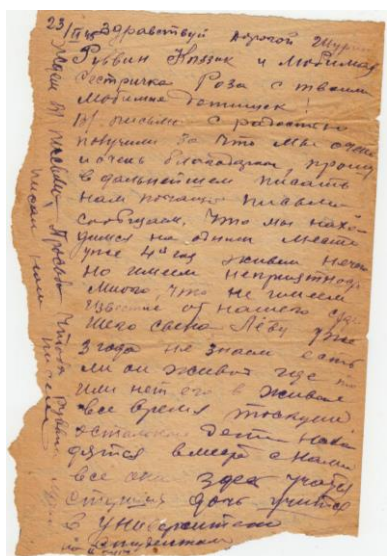 23/III 45 Здравствуй дорогой Шурин
Рувин Князик и любимая
сестричка Роза с твоими
любимые детишек!
письмо с радостью
получили за что мы очень
и очень благодарим, прошу
в дальнейшем писать
нам почаще письма
сообщаем, что мы нахо-
димся на одном месте
уже 4й год живем ничего
но имеем неприятнос
много, что не имеем
известие от нашего
сына Лёву уже
3 года не знаем есть
ли он живой где то
или нет его в живых
все время тоскуем
остальные дети нахо
дятся вместе с нами
все они здесь учатся
старшая дочь учится
в университет
Ждем вы письма, Просьба чтоб Рувин
писал нам письма